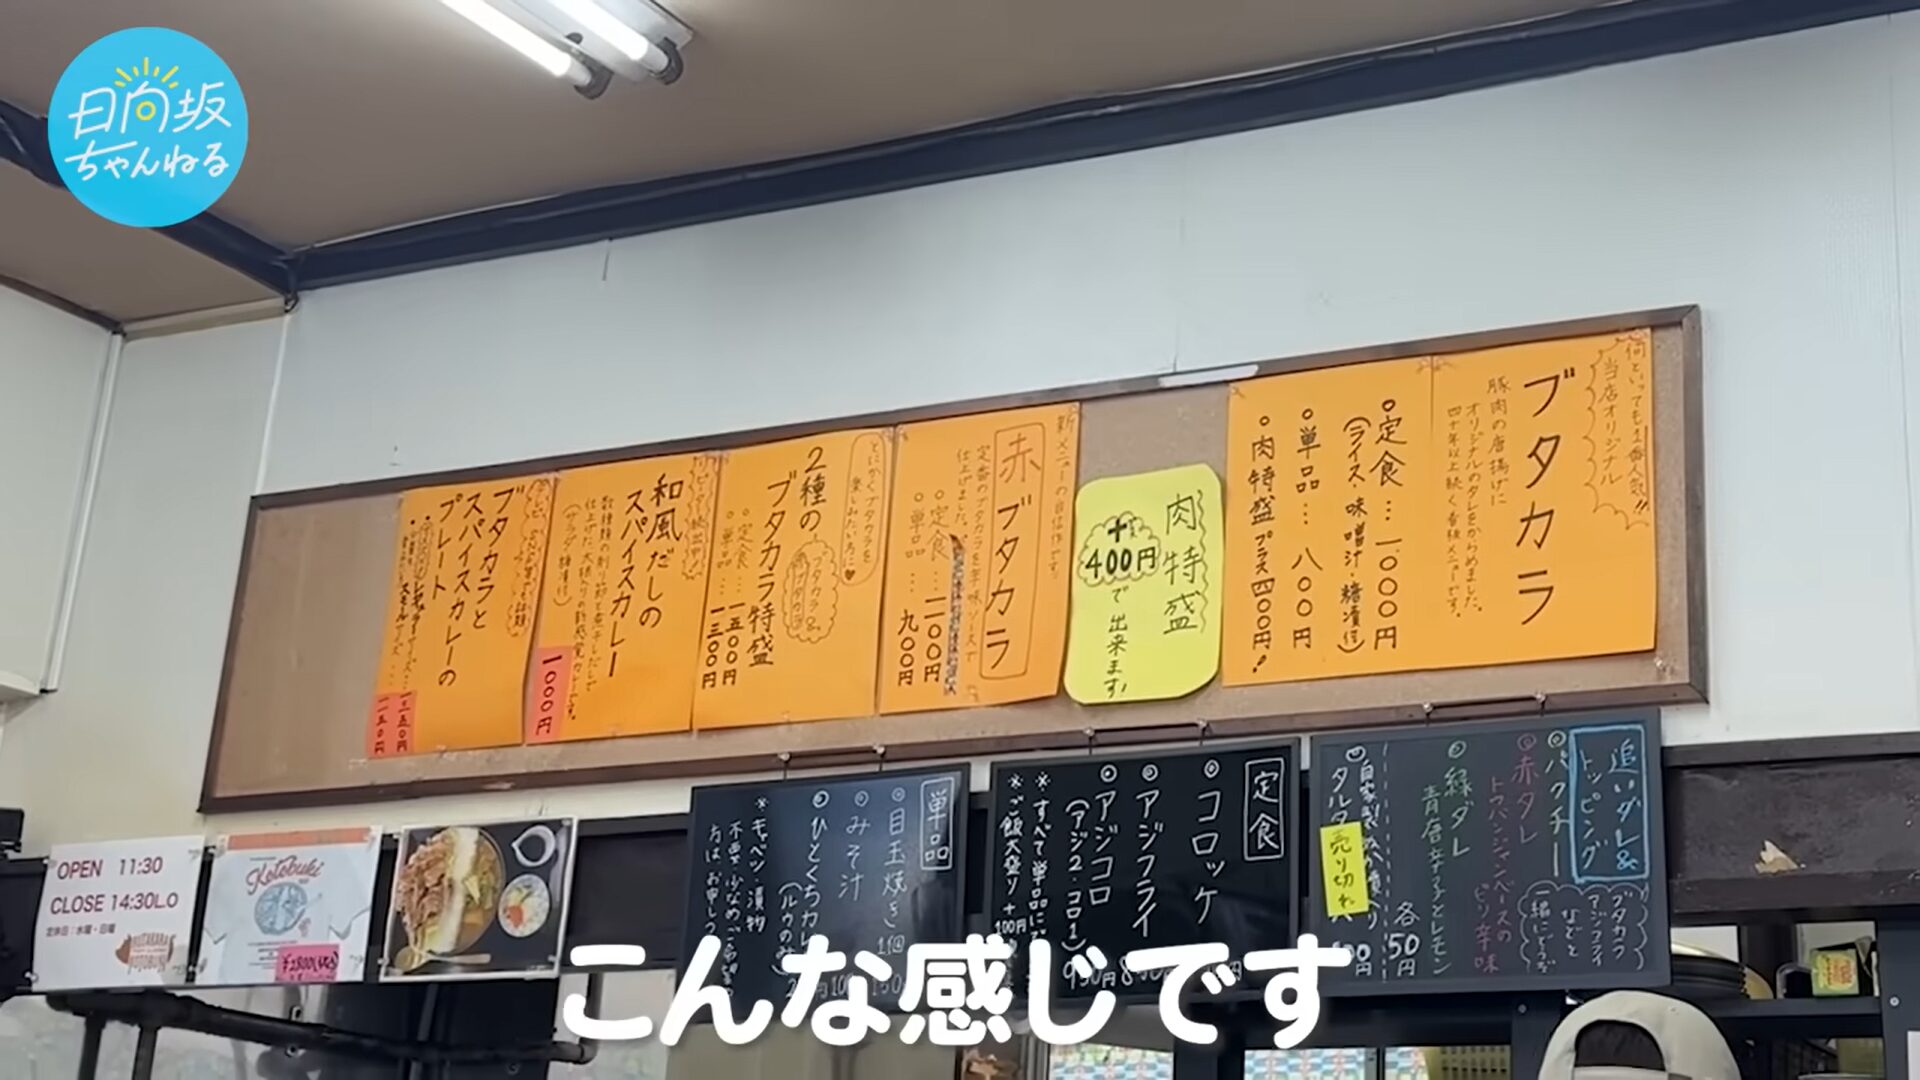 日向坂
ちゃんねる
何といっても1番人気!!
当店オリジナル
ブタカラ
豚肉の唐揚げに
オリジナルのタレをからめました。
四十年以上続く看板メニューです。
定食…一〇〇〇円
(ライス・味噌汁・糖漬付)
単品…八〇〇円
肉特盛 プラス四〇〇円!
肉特盛
+400円
で出来ます!
新メニューの自信作です。
赤ブタカラ
定番のブタカラを辛味ソースで
仕上げました。
定食…一一〇〇円
単品…九〇〇円
とにかくブタカラを
楽しみたい方に♥
2種の
ブタカラ特盛
ブタカラ&
赤ブタカラ
定食…一五〇〇円
単品…一三〇〇円
和風だしの
スパイスカレー
数種類の削り節と煮干しだしで
一〇〇〇円
ブタカラと
スパイスカレーの
プレート
一三五〇円
一一五〇円
追いダレ&
トッピング
ブタカラ
アジフライ
などと
一緒にどうぞ
パクチー
赤タレ
トウバンジャンベースの
ピリ辛味
緑ダレ
青唐辛子とレモン
各50円
自家製
売り切れ
定食
コロッケ
アジフライ
アジコロ
(アジ2・コロ1)
ご飯大盛り+100円
単品
目玉焼き 1個
みそ汁
キャベツ・漬物
OPEN 11:30
CLOSE 14:30L.O
定休日:水曜・日曜
Kotobuki
¥2800(税込)
こんな感じです